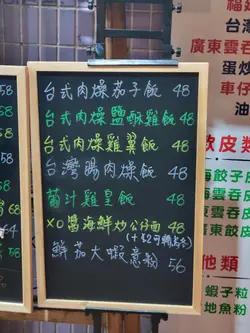 台式肉燥茄子飯 48
台式肉燥鹽酥雞飯 48
台式肉燥雞翼飯 48
台灣腸肉燥飯 48
葡汁雞皇飯 48
XO醬海鮮炒公仔面 48
鮮茄大蝦意粉 56
58
58
58
68
58
台灣
廣東雲吞
蛋炒
車仔
油
餃皮類
海餃子皮
海雲吞皮
廣東餃皮
他類
蝦子粒
地魚粉